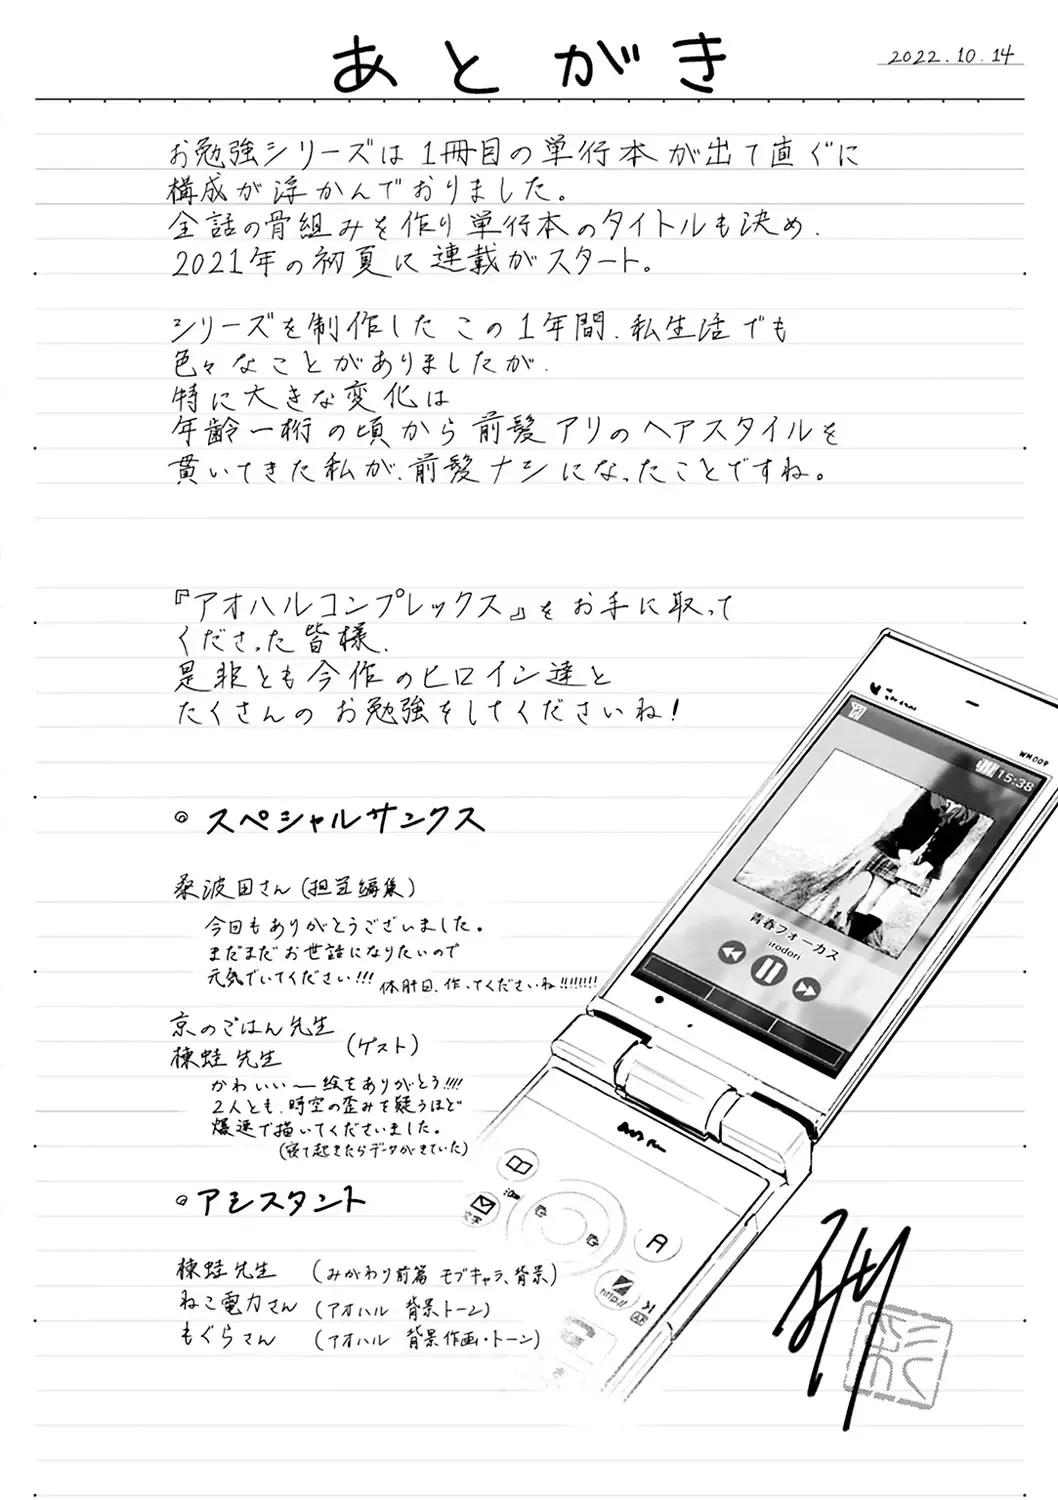 あとがき
2022.10.14
お勉強シリーズは1冊目の単行本が出て直ぐに
構成が浮かんでおりました。
全話の骨組みを作り単行本のタイトルも決め、
2021年の初夏に連載がスタート。
シリーズを制作したこの1年間、私生活でも
色々なことがありましたが、
特に大きな変化は
年齢一桁の頃から前髪アリのヘアスタイルを
貫いてきた私が、前髪ナシになったことですね。
『アオハルコンプレックス』をお手に取って
くださった皆様、
是非とも今作のヒロイン達と
たくさんのお勉強をしてくださいね!
◎スペシャルサンクス
桑波田さん(担当編集)
今回もありがとうございました。
まだまだお世話になりたいので
元気でいてください!!!
休肝日、作ってくださいね!!!!!!!!
京のごはん先生
棟蛙先生
(ゲスト)
かわいいー絵をありがとう!!!!
2人とも、時空の歪みを疑うほど
爆速で描いてくださいました。
(寝て起きたらデータがきていた)
◎アシスタント
棟蛙先生 (みがわり前篇 モブキャラ、背景)
ねこ電力さん (アオハル 背景トーン)
もぐらさん (アオハル 背景作画・トーン)
WM009
15:38
青春フォーカス
irodori
文字
A
http://